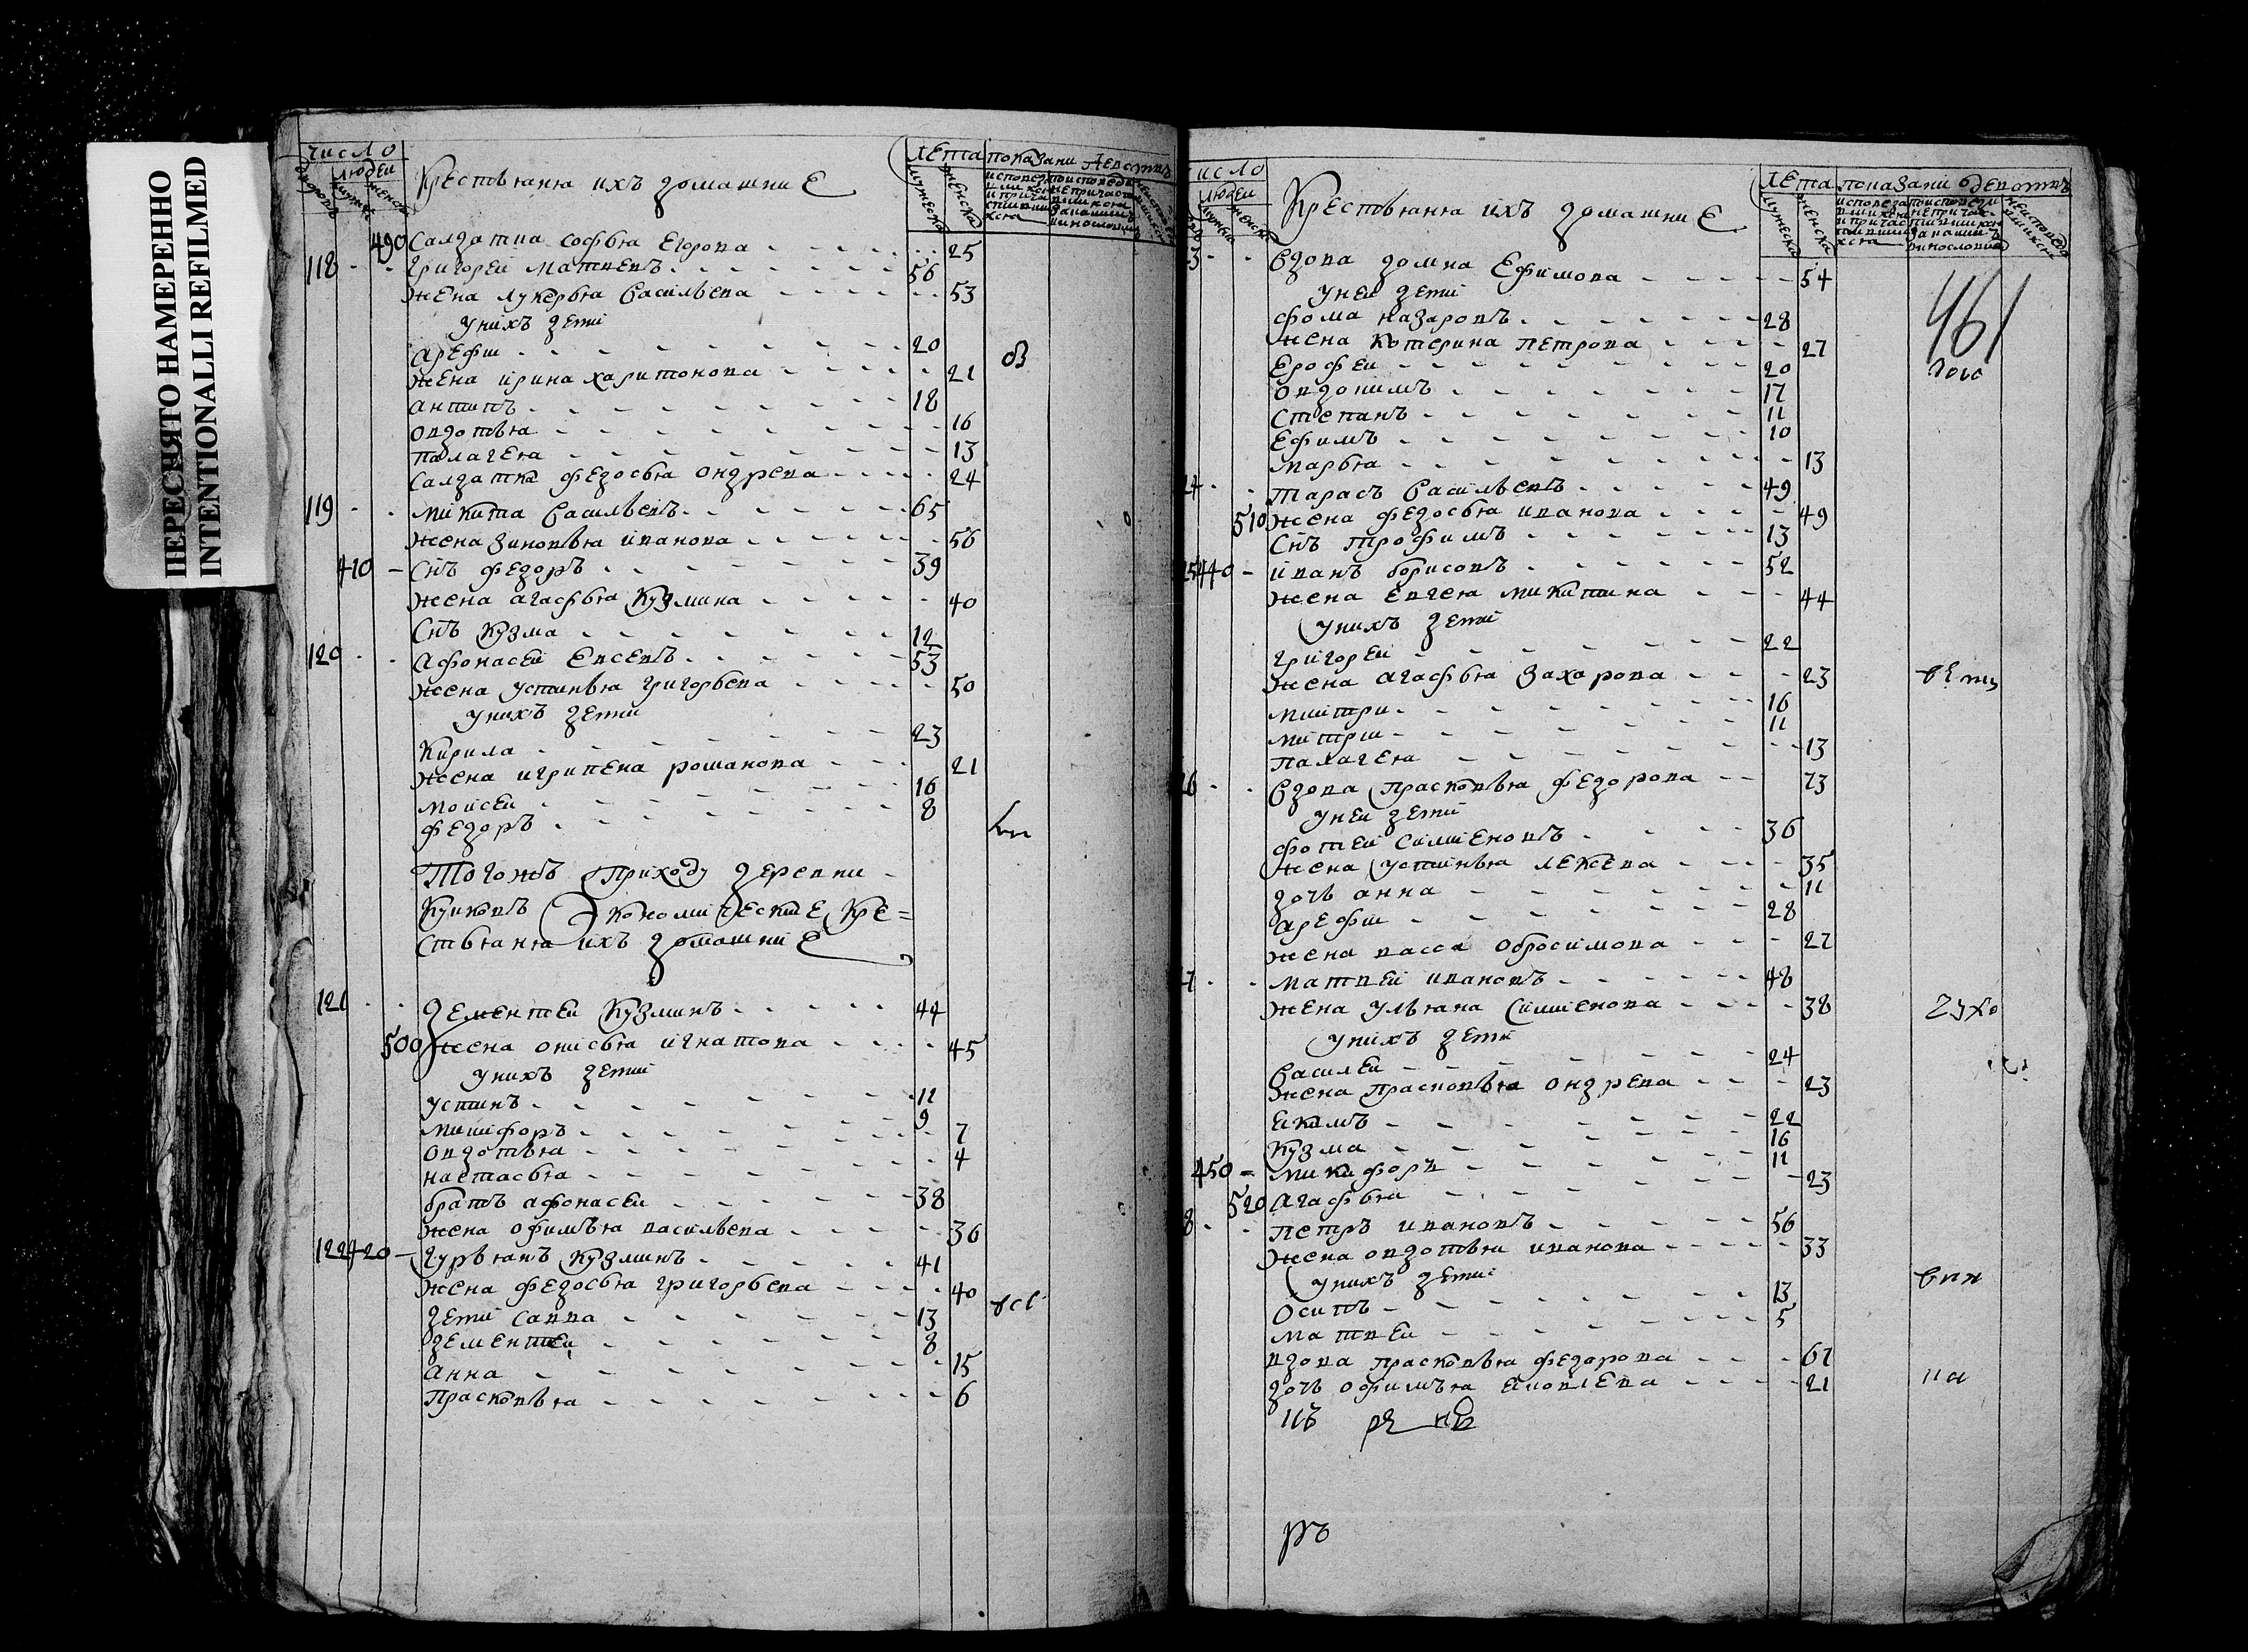 ПЕРЕСНЯТО НАМЕРЕННО
INTENTIONALLI REFILMED
число
людеи
Крестьяня ихъ домашние
лета
показани
мужеска
женска
490 Салдатка Софья Егорова 25
118 Григореи Матвевъ 56
жена Лукерья Васильева 53
у нихъ дети
Арефи 20
жена ирина харитонова 21
антипъ 18
овдотья 16
палагея 13
Салдатка федосья ондрева 24
119 микита Васильевъ 65
жена Зиновья иванова 56
410 Снъ федоръ 39
жена агафья Кузмина 40
Снъ Кузма 12
120 афонасеи Евсевъ 53
жена устинья григорьева 50
у нихъ дети
Кирила 23
жена игрипена романова 21
моисеи 16
федоръ 8
Тогожъ приходу деревни
Куковъ Экономические Кре=
стьяня ихъ домашние
121 дементеи Кузминъ 44
500 жена онисья игнатова 45
у нихъ дети
устинъ 11
микифоръ 9
овдотья 7
настасья 4
братъ афонасеи 38
жена офимья васильева 36
122 420 Гурьянъ Кузминъ 41
жена федосья григорьева 40
дети Савва 13
дементеи 8
анна 15
Прасковья 6
число
людеи
Крестьяня ихъ домашние
лета показани о девотъ
мужеска
женска
461
3 Вдова домна Ефимова 54
у неи дети
фома назаровъ 28
жена Котерина петрова 27
Ерофеи 20
овдокимъ 17
Степанъ 11
Ефимъ 10
марья 13
24 тарасъ Васильевъ 49
510 жена федосья иванова 49
Снъ трофимъ 13
25 440 иванъ борисовъ 52
жена Евгея микитина 44
у нихъ дети
григореи 22
жена агафья Захарова 23
митри 16
митри 11
палагея 13
26 Вдова Прасковья федорова 73
у неи дети
фотеи Симионовъ 36
жена устинья лексева 35
дочь анна 11
арефи 28
жена васса обросимова 27
7 матвеи ивановъ 48
жена ульяна Симионова 38
у нихъ дети
Василеи 24
жена прасковья ондрева 23
екимъ 22
Кузма 16
450 микифоръ 11
520 агафья 23
8 петръ ивановъ 56
жена овдотья иванова 33
у нихъ дети
осипъ 13
матвеи 5
вдова прасковья федорова 67
дочь офимья Яковлева 21